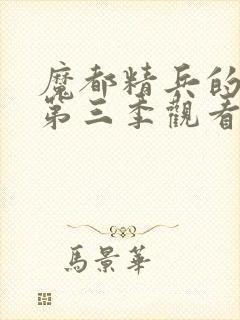 魔都精兵的
第三季觀看
馬景華